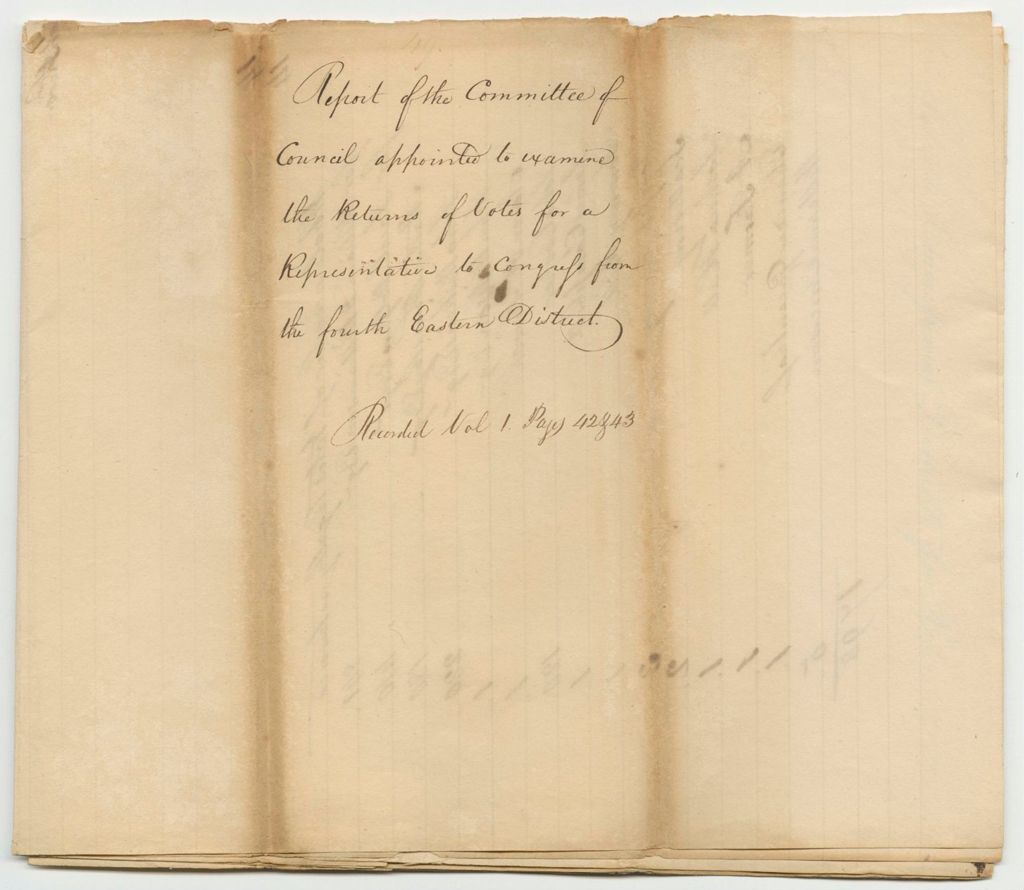 Report of the Committee of
Council appointed to examine
the Returns of Votes for a
Representative to Congress from
the fourth Eastern District.
Recorded Vol 1. Pages 42 & 43